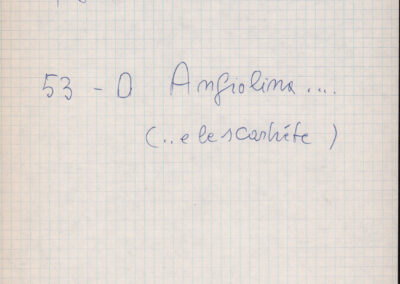 53 - O Angiolina....
(..e le scarhéte )